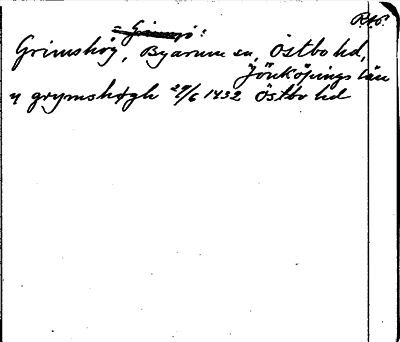 R.A.P.
= Grimsjö:
Grimshög, Byarums sn, Östbo hd,
Jönköpings län
y grymshøgh 29/6 1432 Östbo hd